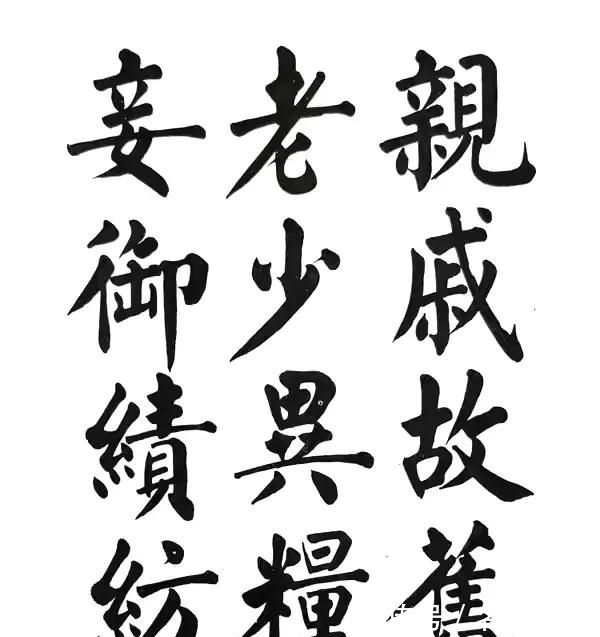 親戚故舊
老少異糧
妾御績紡